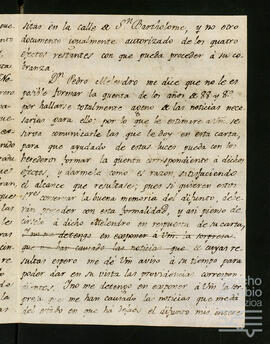 sitas en la calle de Sn. Bartholome, y no otro
documento igualmente autorizado de los quatro
efectos restantes con que pueda proceder á su co-
branza.
Dn. Pedro Melendro me dice que no le es
posible formar la quenta de los años de 88 y 89
por hallarse totalmente ageno de las noticias nece-
sarias para ello; por lo que le estimare a Vm. se
sirva comunicarle las que le doy en esta carta,
para que ayudado de estas luces pueda con los
herederos formar la quenta correspondiente á dichos
efectos, y darmela como es razon, satisfaciendo
el alcance que resultare; pues si quieren estos
conservar la buena memoria del difunto, debe-
rán proceder con esta formalidad, y asi pienso de
á dicho Melendro en respuesta de su carta,
detengo en exponer á Vm. la sorpresa
que me han causado las noticias de cuyas re-
sultas espero me dé Vm. aviso á su tiempo para
poder dar en su vista las providencias correspon-
dientes. No me detengo en exponer á Vm. la sor-
presa que me han causado las noticias que me da
del estado en que ha dejado el difunto mis intere-